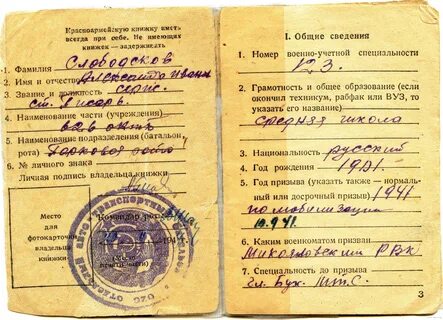 Красноармейскую книжку иметь
всегда при себе. Не имеющих
книжек — задерживать
1. Фамилия Слободсков
2. Имя и отчество Александр Иван
3. Звание и должность серж.
ст. писарь
4. Наименование части (учреждения)
5. Наименование подразделения (батальон,
рота) Парковая рота
6. № личного знака
Личная подпись владельца книжки
Место
для
фотокарточки
владельца
книжки
Командир
I. Общие сведения
1. Номер военно-учетной специальности
123.
2. Грамотность и общее образование (если
окончил техникум, рабфак или ВУЗ, то
указать его название)
средняя школа
3. Национальность русский
4. Год рождения 1901
5. Год призыва (указать также — нормаль-
ный или досрочный призыв) 1941
по мобилизации
6. Каким военкоматом призван
Михайловским РВК
7. Специальность до призыва
Гл. Бух. М.Т.С.
3